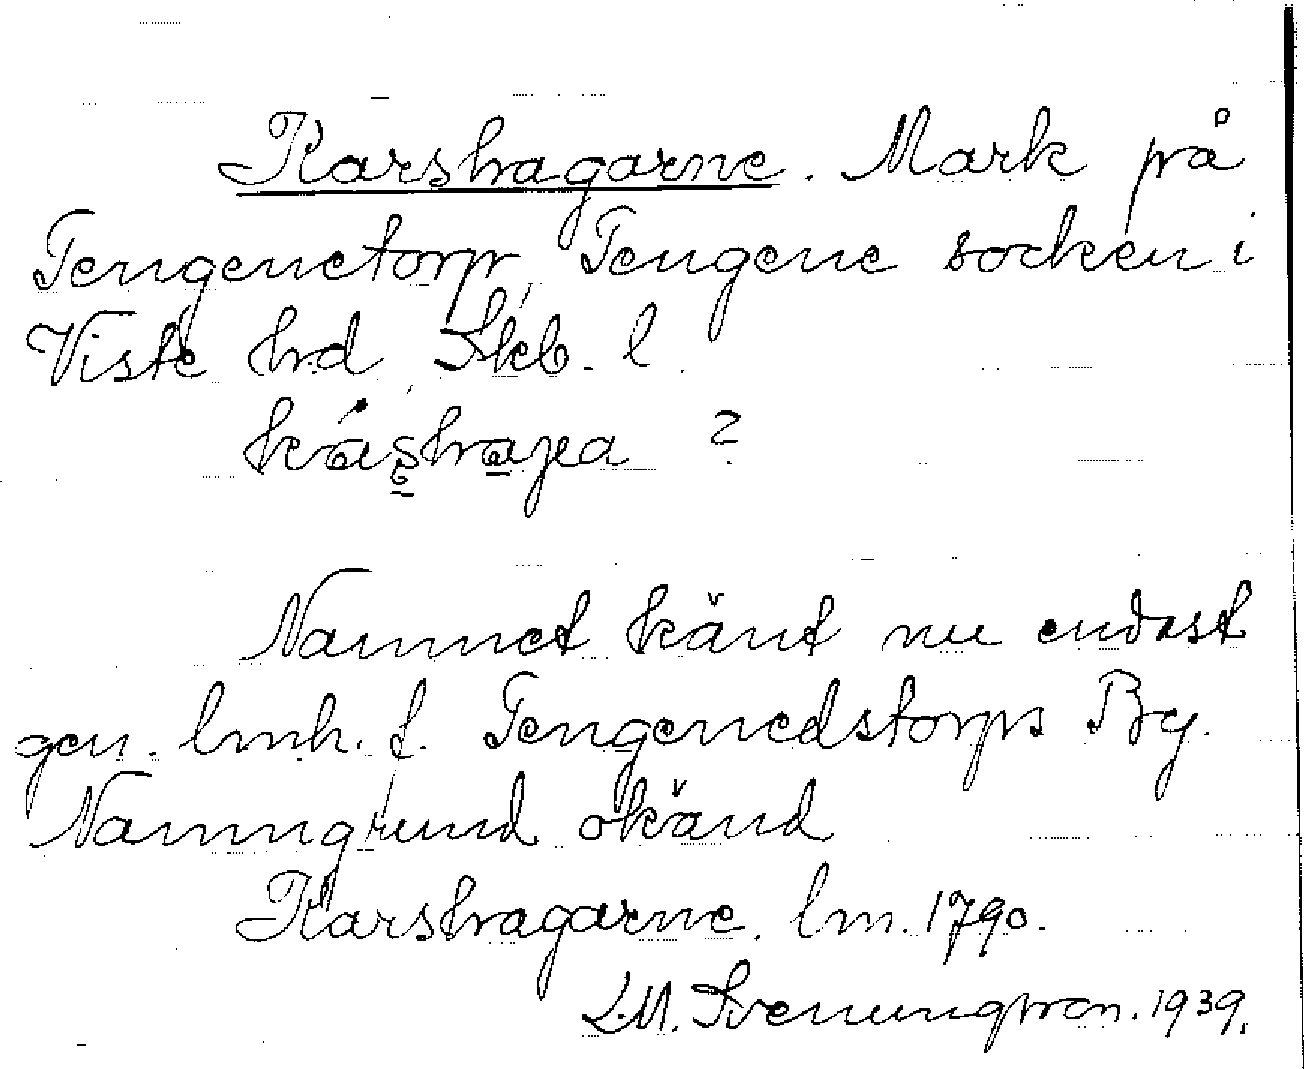 Karshagarne. Mark på
Tengenetorp, Tengene socken i
Viste hd Skb. l.
kráshaga ?
Namnet känt nu endast
gen. lmh. f. Tengenedstorps By.
Namngrund okänd
Karshagarne. lm. 1790.
L.M. Svenungsson. 1939.